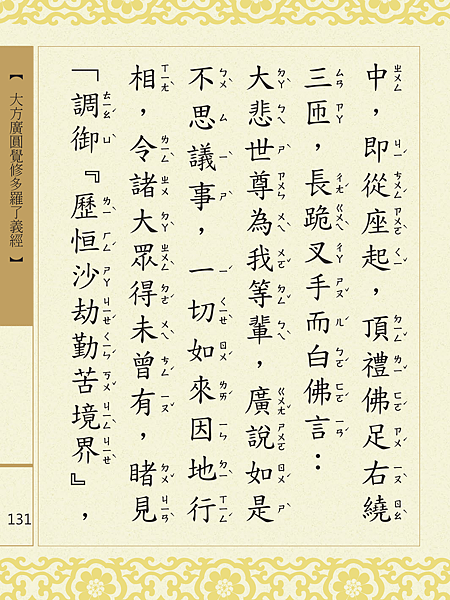 中，即從座起，頂禮佛足右繞
三匝，長跪叉手而白佛言：
大悲世尊為我等輩，廣說如是
不思議事，一切如來因地行
相，令諸大眾得未曾有，睹見
「調御『歷恒沙劫勤苦境界』，
【大方廣圓覺修多羅了義經】
131